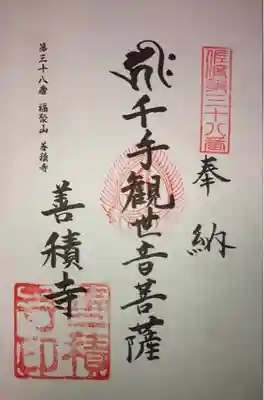 佐渡第三十八番
奉納
千手観世音菩薩
善積寺
善積寺印
第三十八番 福聚山 善積寺